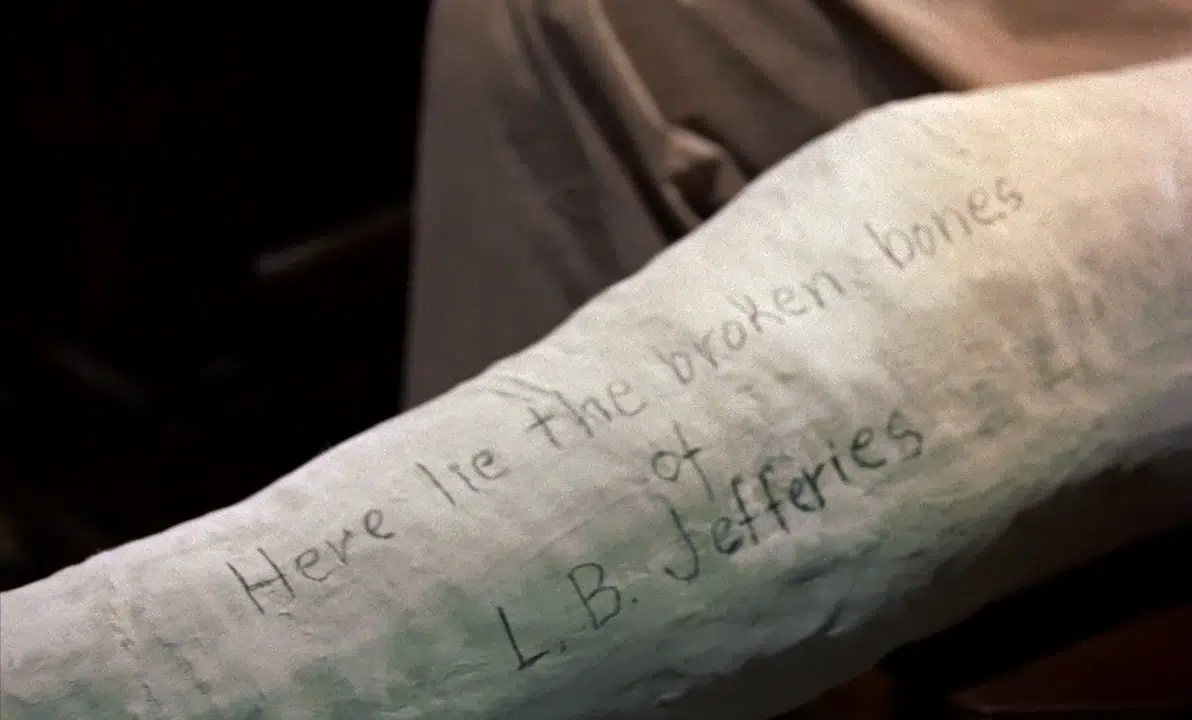 Here lie the broken bones
of
L. B. Jefferies